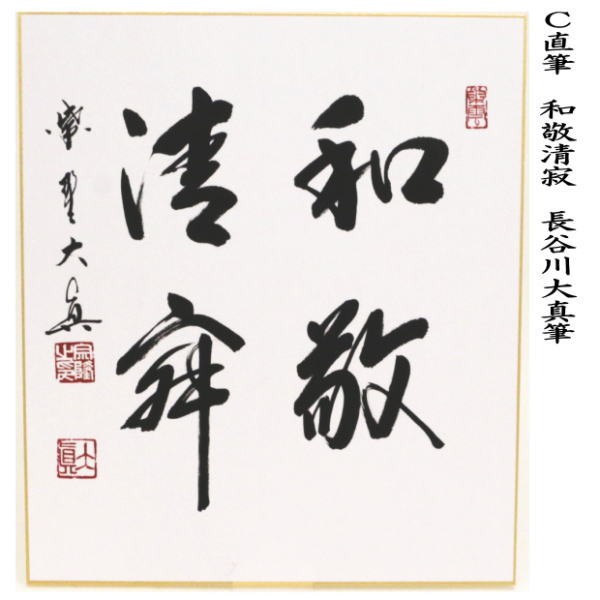 C直筆 和敬清寂 長谷川大真筆
和敬
清寂
紫野大真